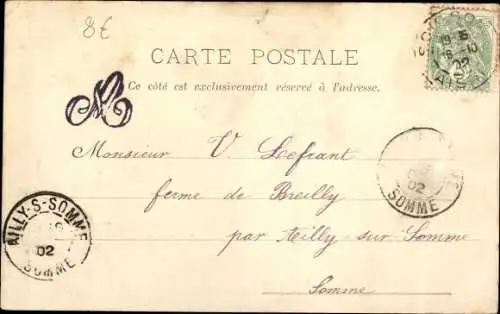 8€
CARTE POSTALE
Ce côté est exclusivement réservé à l'adresse.
M
Monsieur V. Lefrant
ferme de Breilly
par Ailly sur Somme
Somme
AILLY-S-SOMME
02
SOMME
02
SOMME
02